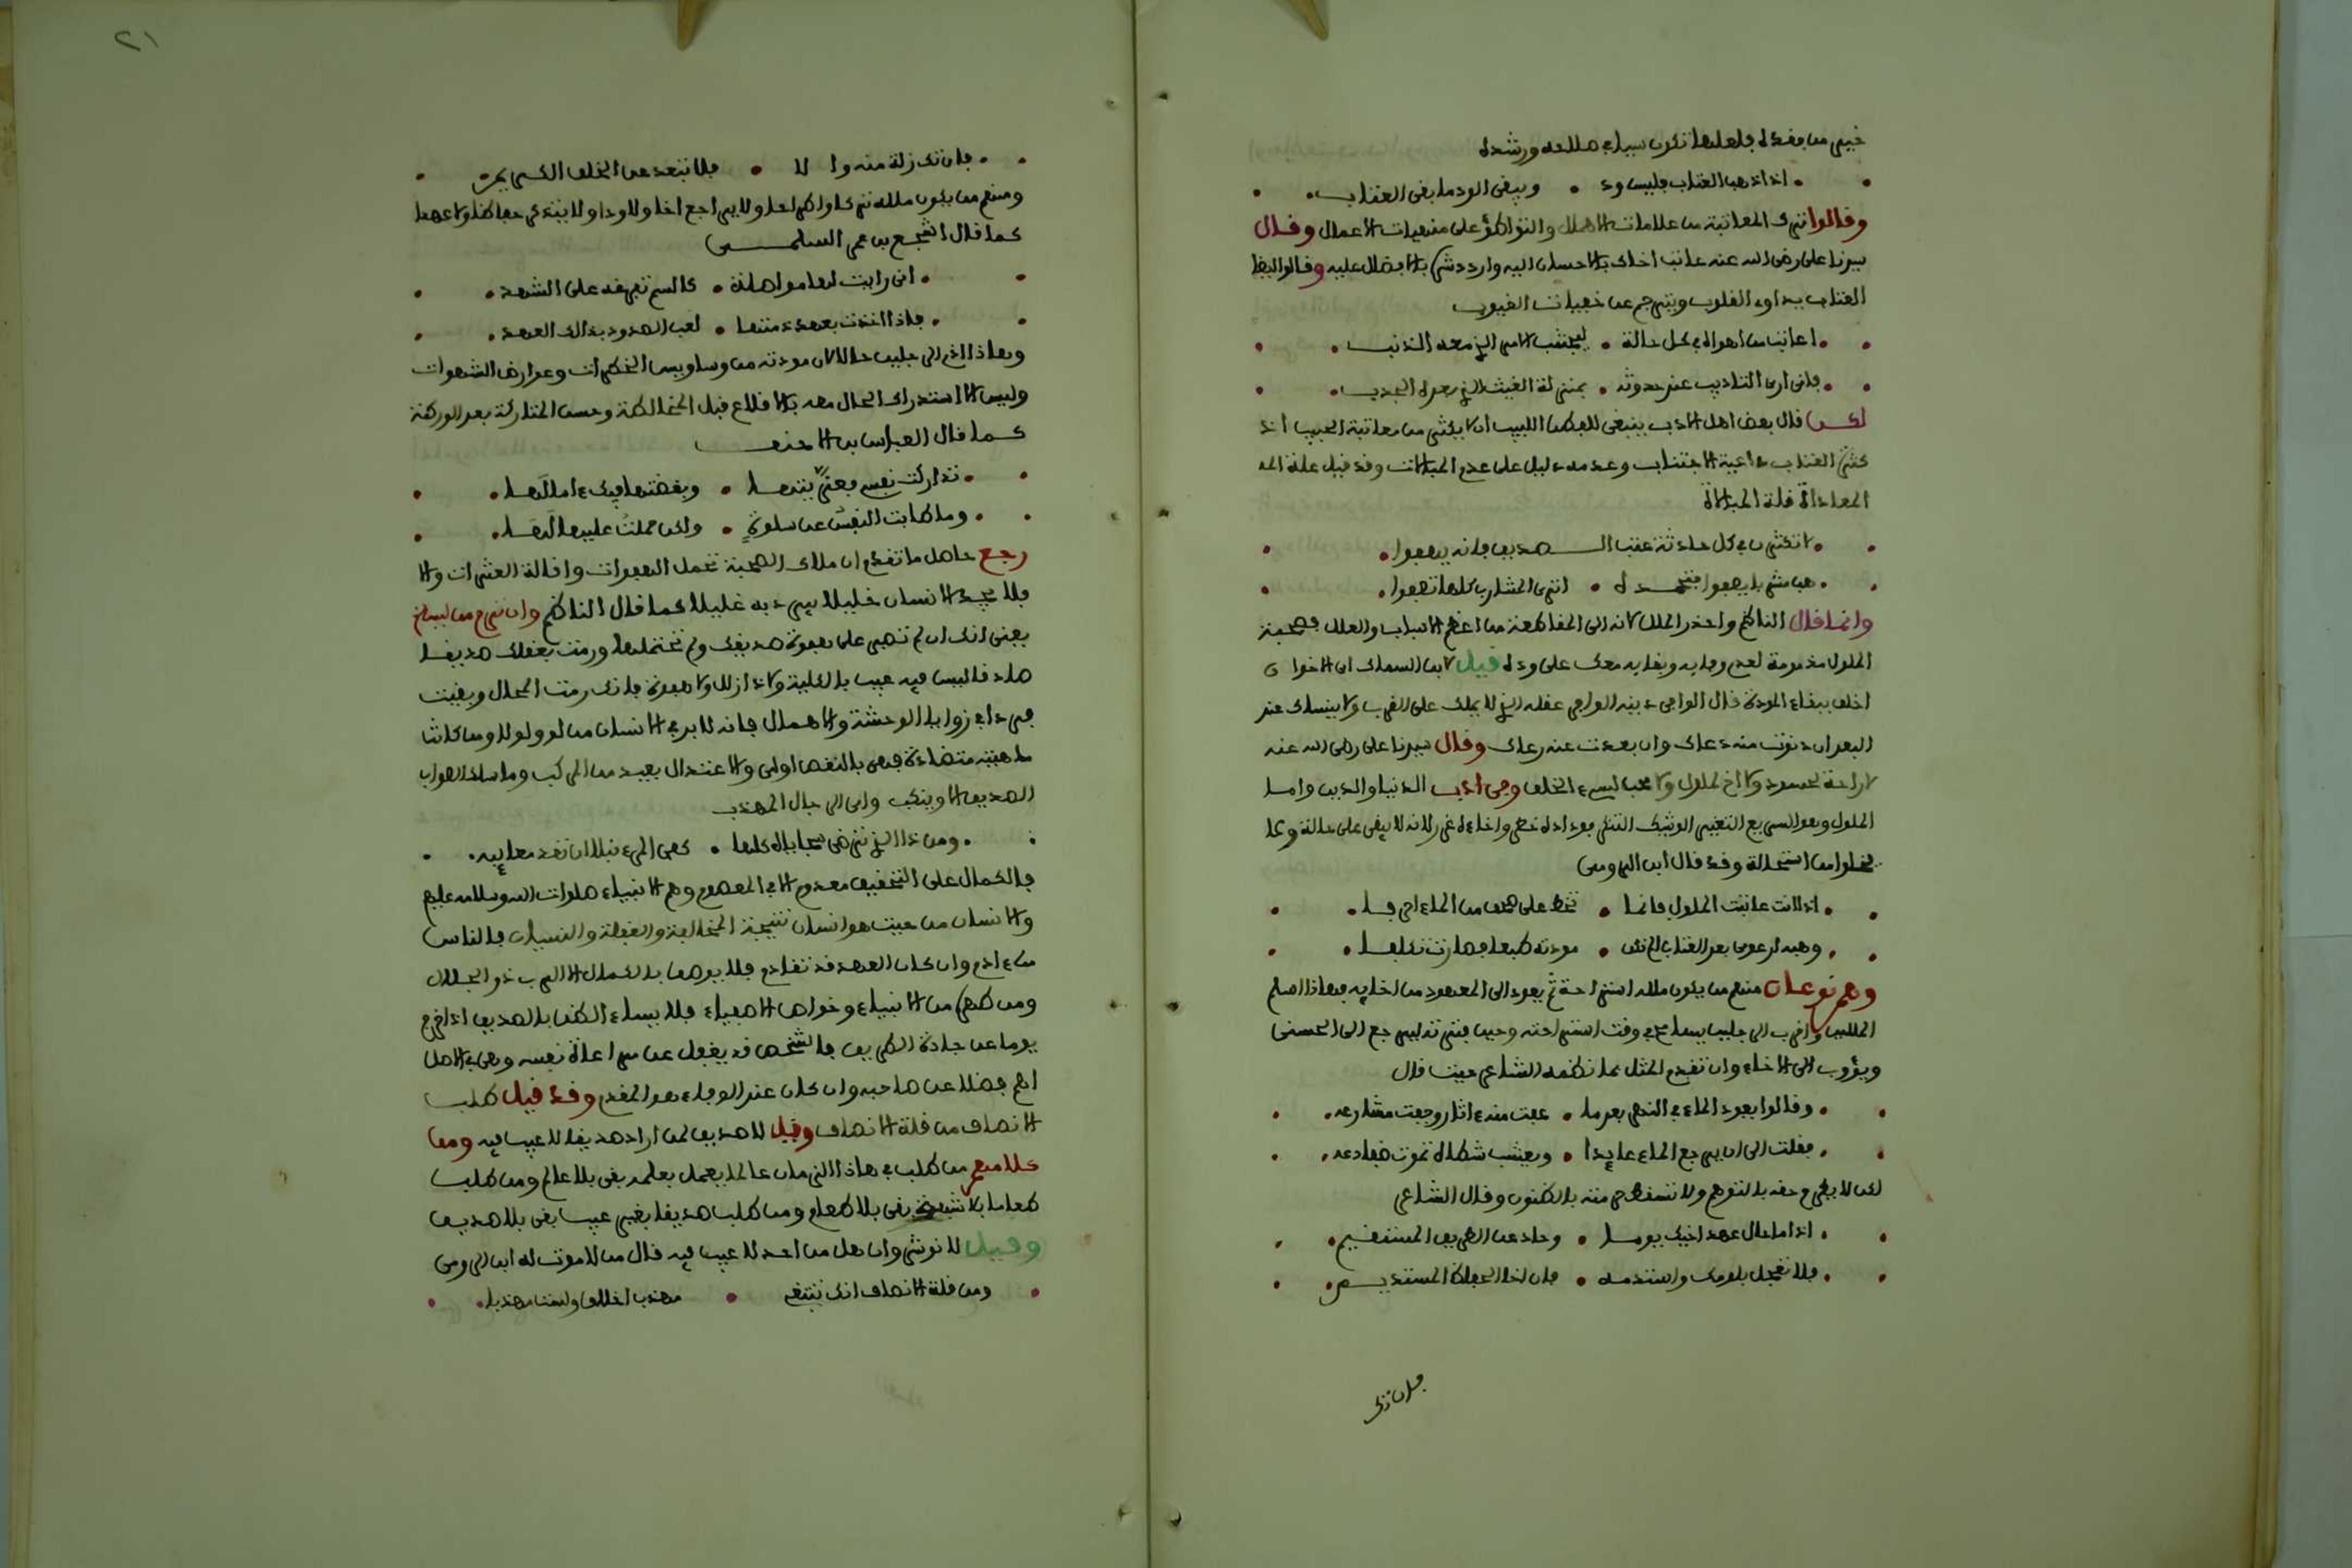 خير من فقده فلعلها تكون سببا في صلاحه ورشده
اذا ذهب العتاب فليس ود • ويبقى الود ما بقي العتاب
وقالوا ترك المعاتبة من علامات الاهمال والتواطؤ على منهيات الاعمال وقال
سيدنا علي رضي الله عنه عاتب اخاك بالاحسان اليه واردد شره بالافضال عليه وقالوا ايضا
العتاب يداوي القلوب ويترجم عن خفيات الغيوب
اعاتب من اهواه في كل حالة • ليجتنب الامر الذي معه الذنب
فاني ارى التاديب عند حدوثه • بمنزلة الغيث الذي معه الجدب
لكن قال بعض اهل الادب ينبغي للفطن اللبيب ان لا يكثر من معاتبة الحبيب اذ
كثرة العتاب داعية الاجتناب وعدمه دليل على عدم المبالات وقد قيل علة الم
المعاداة قلة المبالاة
لا تكثرن في كل حادثة عتب الصديق فانه يهفوا
وانما قال الناظم واحذر الملل لانه اي من اعظم الاسباب والعلل فصحبة
الملول مذمومة لعدم وفايه وبقايه معك على وده قيل لابن السماك اي الاخوان
احق ببقاء المودة قال الوافر دينه الوافر عقله الذي لا يملك على القرب ولا ينساك عند
البعد ان دنوت منه دعاك وان بعدت عنه رعاك وقال سيدنا علي رضي الله عنه
لا راحة لحسود ولا اخ لملول ولا محب لسيء الخلق وهي ادب الدنيا والدين واما
الملول وهو السريع التغير الوشيك التنكر فوداده خطر واخاؤه غرر لانه لا يبقى على حالة ولا
يخلوا من استحالة وقد قال ابن الرومي
اذا انت عاتبت الملول فانما • تخط على صحف من الماء احرفا
وهبه ارعوى بعد العتاب الم تكن • مودته طبعا فصارت تكلفا
وهم نوعان منهم من يكون ملله استراحة ثم يعود الى المعهود من اخايه فهذا اسلم
المللين واقرب الى يسامح في وقت استراحته وحين فترته ليرجع الى الحسنى
ويؤوب الى الاخاء وان تقدم المثل بما نظمه الشاعر حيث قال
وقالوا يعود الماء في النهر بعد ما • عفت منه اثار وجفت مشارعه
فقلت الى ان يرجع الماء عايدا • ويعشب شطاه تموت ضفادعه
لكن لا يطرح حقه بالتوهم ولا تسقط حرمته بالظنون وقال الشاعر
اذا ما حال عهد اخيك يوما • وحاد عن الطريق المستقيم
فلا تعجل بلومك واستدمه • فان اخا الحفاظ المستديم
فان تك
٢١
فان تك زلة منه والا • فلا تبعد عن الخلق الكريم
ومنهم من يكون ملله تركا واطراحا ولا يراجع اخا ولا ودا ولا يتذكر حفاظا ولا عهدا
كما قال اشجع بن عمر السلمي
اني رايت لها مواصلة • كالسم تفرغه على الشهد
فاذا اخذت بعهد ذمتها • لعب الصدود بذاك العهد
وهذا اذم الرجلين حالا لان مودته من وساويس الخطرات وعوارض الشهوات
وليس الا استدراك الحال معه بالاقلاع قبل المخالطة وحسن المتاركة بعد الورطة
كما قال العباس بن الاحنف
تداركت نفسي فعزيتها • وبغضتها فيك ءامالها
وما طابت النفس عن سلوة • ولكن حملت عليها لها
رجع حاصل ما تقدم ان ملاك الصحبة تحمل الهفوات واقالة العثرات والا
فلا يجد الانسان خليلا يبرد به غليلا كما قال الناظم وان ترم من ليس
يعني انك ان لم تصبر على هفوة صديقك ولم تحتملها ورمت بعقلك صديقا
صادقا ليس فيه عيب بالكلية ولا نازلة ولا هفوة فانك رمت المحال وبقيت
في زوايا الوحشة والاهمال فانه لا بد في الانسان من لو ولولا ومن كانت
ماهيته متضادة فهي بالنقص اولى والاعتدال بعيد من المركب وما سلك الصواب
الصديق الا وينكب واي الرجال المهذب
ومن ذا الذي ترضى سجاياه كلها • كفى المرء نبلا ان تعد معايبه
فالكمال على التحقيق معدوم الا في المعصوم وهم الانبياء صلوات الله وسلامه عليهم
والانسان من حيث هو انسان نتيجة المخالفة والغفلة والنسيان فالناس
من ءادم وان كان العهد قد تقادم فلا يوصف بالكمال الا الرب ذو الجلال
ومن طهر من الانبياء وخواص الاصفياء فلا يساء الظن بالصديق اذا خرج
يوما عن جادة الطريق فالشخص قد يغفل عن مراعاة نفسه وهي الاصل
اهم فضلا عن صاحبه وان كان عند الوفاء هو المقدم وقد قيل طلب
الانصاف من قلة الانصاف وقيل لا صديق لمن اراد صديقا لا عيب فيه ومن
كلامهم من طلب في هذا الزمان عالما يعمل بعلمه بقي بلا عالم ومن طلب
طعاما بلا شبهة بقي بلا طعام ومن طلب صديقا بغير عيب بقي بلا صديق
وقيل لانوشروان هل من احد لا عيب فيه قال من لا موت له ابن الرومي
ومن قلة الانصاف انك تبتغي • مهذب اخلاق ولست مهذبا